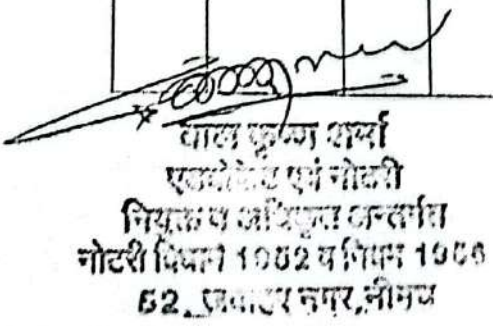 बाल कृष्ण शर्मा
एडवोकेट एवं नोटरी
नियुक्त व अधिकृत अन्तर्गत
नोटरी विधान 1952 व नियम 1956
52, जवाहर नगर, नीमच